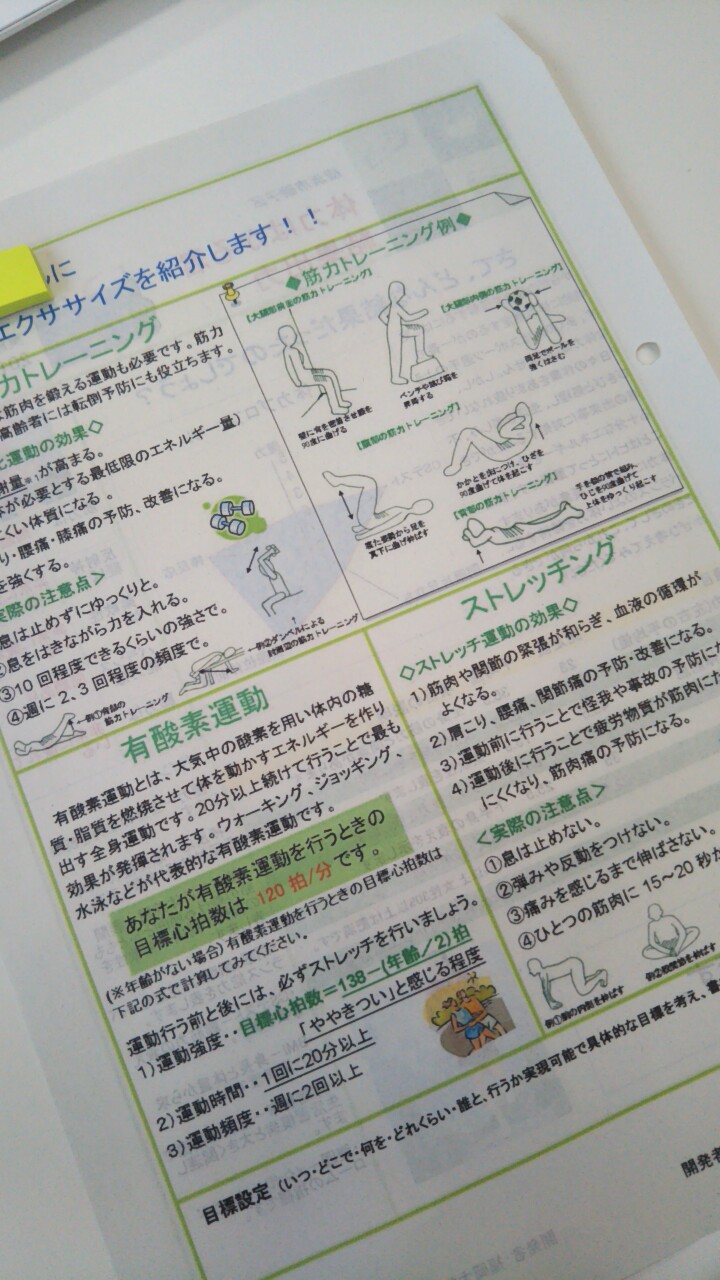 に
エクササイズを紹介します！！
力トレーニング
筋肉を鍛える運動も必要です。筋力
高齢者には転倒予防にも役立ちます。
運動の効果◇
謝量※1が高まる。
が必要とする最低限のエネルギー量)
くい体質になる。
り・腰痛・膝痛の予防、改善になる。
を強くする。
実際の注意点＞
息は止めずにゆっくりと。
②息をはきながら力を入れる。
③10回程度できるくらいの強さで。
④週に2、3回程度の頻度で。
例①背部の
筋力トレーニング
例②ダンベルによる
筋力トレーニング
◆筋力トレーニング例◆
壁に背を密着させ膝を
90度に曲げる
ベンチや踏み台を
昇降する
【大腿部内側の筋力トレーニング】
両足でボールを
強くはさむ
【腹部の筋力トレーニング】
かかとを床につけ、ひざを
90度曲げて体を起こす
寝た姿勢から足を
真下に曲げ伸ばす
【背部の筋力トレーニング】
手を頭の後で組み、
ひじを90度曲げて
上体をゆっくり起こす
有酸素運動
有酸素運動とは、大気中の酸素を用い体内の糖
質・脂質を燃焼させて体を動かすエネルギーを作り
出す全身運動です。20分以上続けて行うことで最も
効果が発揮されます。ウォーキング、ジョッギング、
水泳などが代表的な有酸素運動です。
あなたが有酸素運動を行うときの
目標心拍数は 120 拍/分 です。
(※年齢がない場合)有酸素運動を行うときの目標心拍数は
下記の式で計算してみてください。
運動行う前と後には、必ずストレッチを行いましょう。
1)運動強度‥目標心拍数＝138－(年齢／2)拍
「ややきつい」と感じる程度
2)運動時間‥1回に20分以上
3)運動頻度‥週に2回以上
ストレッチング
◇ストレッチ運動の効果◇
1)筋肉や関節の緊張が和らぎ、血液の循環が
よくなる。
2)肩こり、腰痛、関節痛の予防・改善になる。
3)運動前に行うことで怪我や事故の予防にな
4)運動後に行うことで疲労物質が筋肉にた
にくくなり、筋肉痛の予防になる。
＜実際の注意点＞
①息は止めない。
②弾みや反動をつけない。
③痛みを感じるまで伸ばさない。
④ひとつの筋肉に 15～20 秒か
例①胸の内側を伸ばす
例②股関節を伸ばす
目標設定 (いつ・どこで・何を・どれくらい・誰と、行うか実現可能で具体的な目標を考え、書
開発者